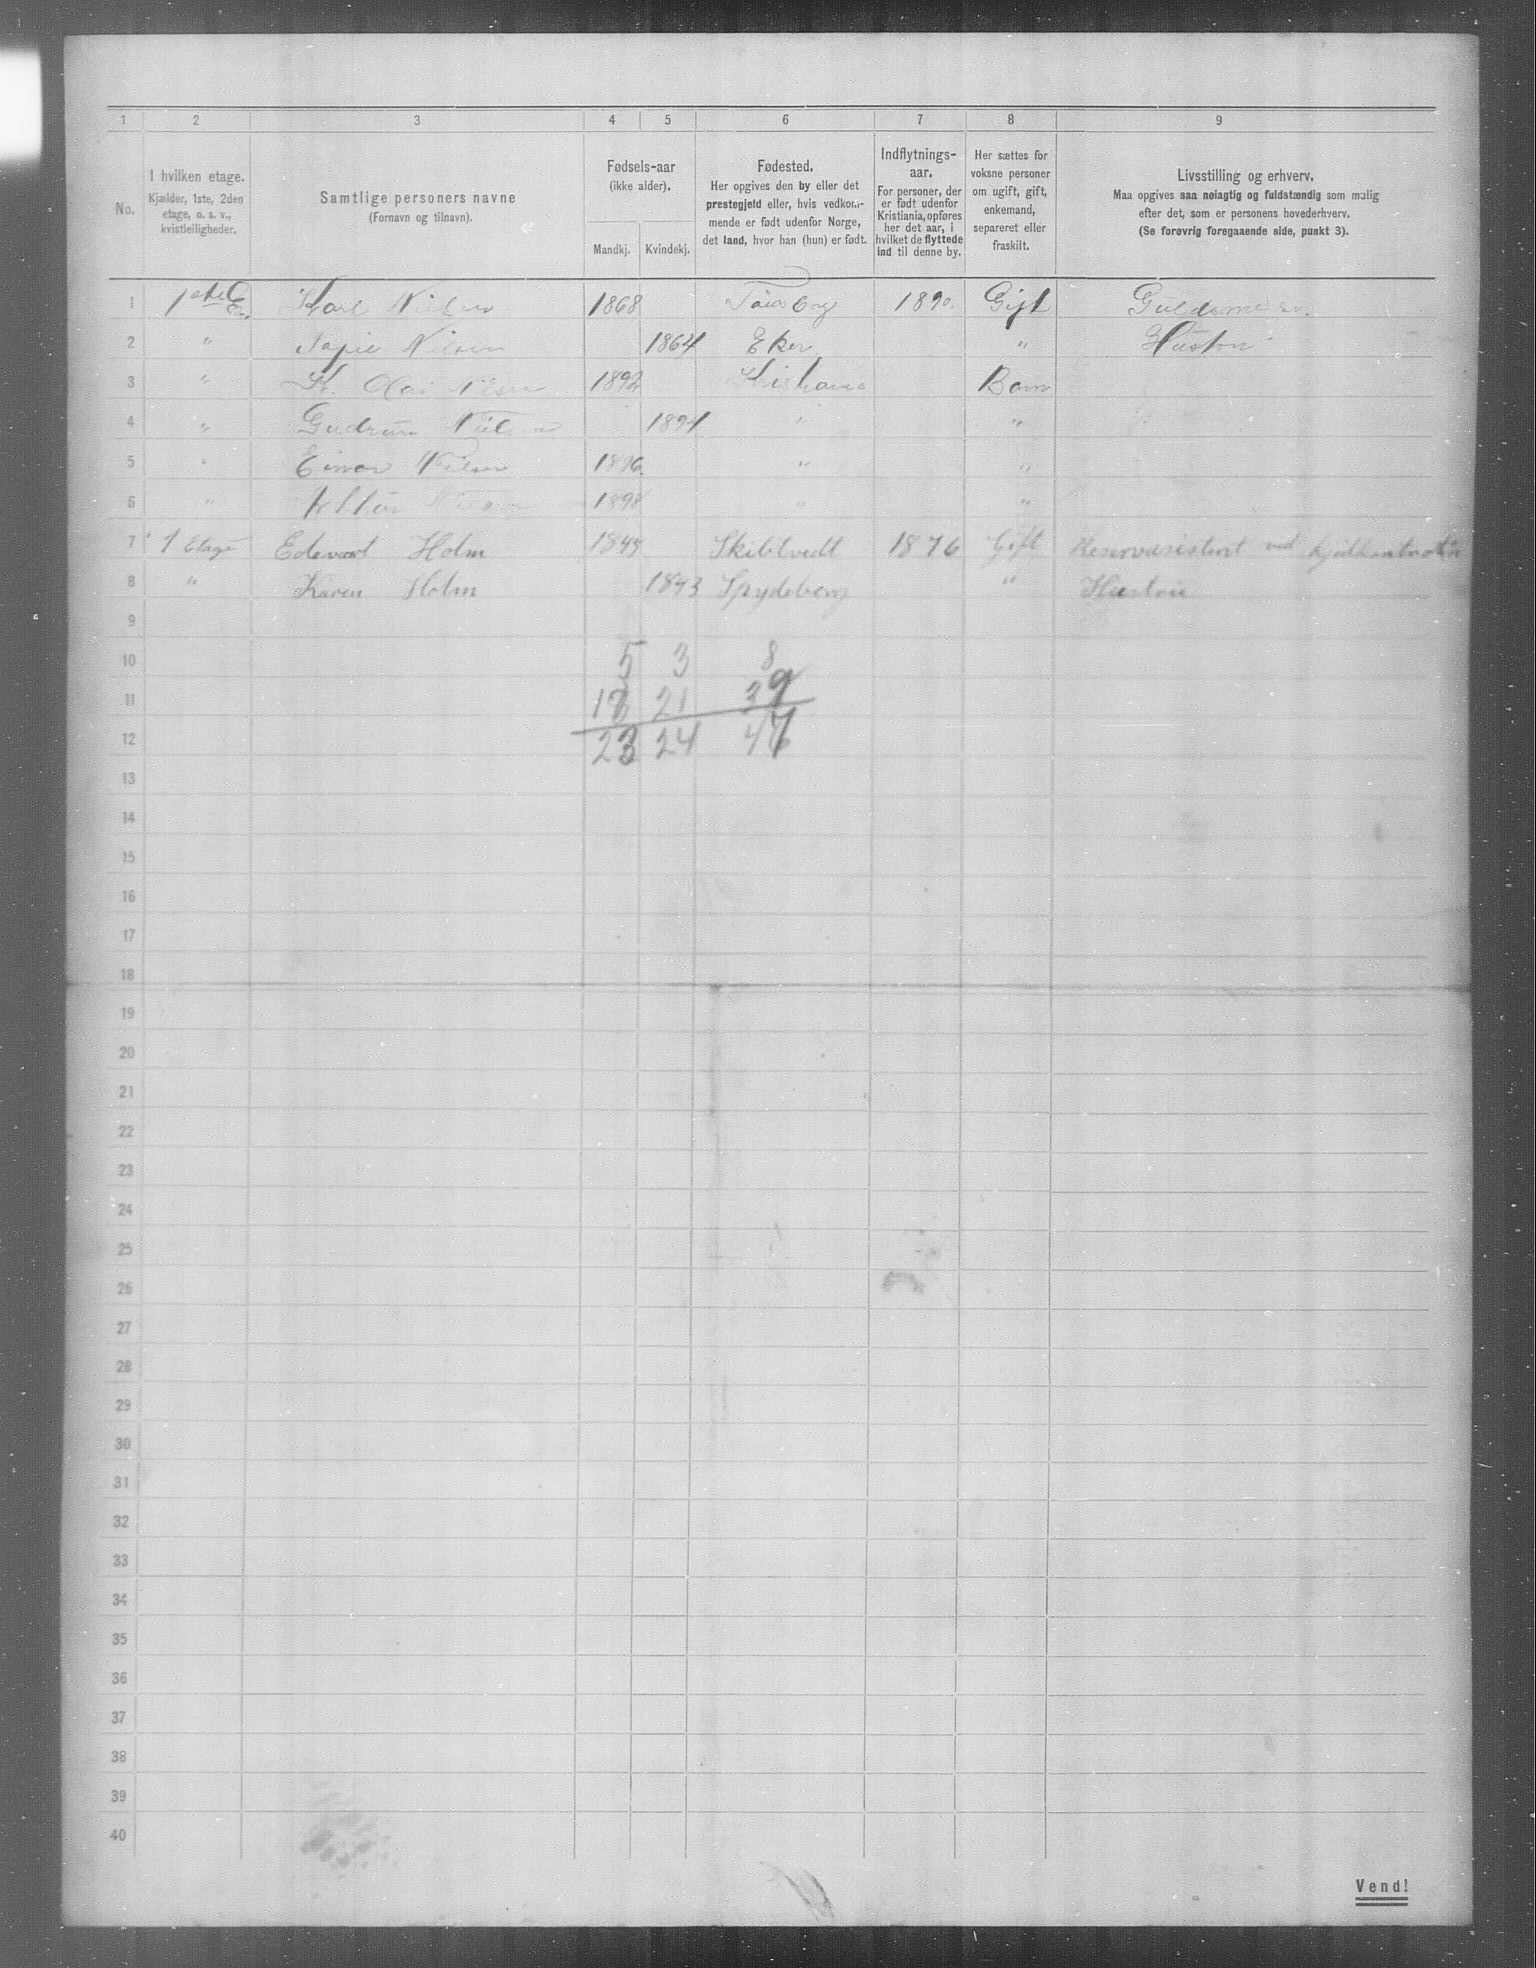 1 2 3 4 5 6 7 8 9
No.
I hvilken etage.
Kjælder, 1ste, 2den
etage, o. s. v.,
kvistleiligheder.
Samtlige personers navne
(Fornavn og tilnavn).
Fødsels-aar
(ikke alder).
Mandkj. Kvindekj.
Fødested.
Her opgives den by eller det
prestegjeld eller, hvis vedkom-
mende er født udenfor Norge,
det land, hvor han (hun) er født.
Indflytnings-
aar.
For personer, der
er født udenfor
Kristiania, opføres
her det aar, i
hvilket de flyttede
ind til denne by.
Her sættes for
voksne personer
om ugift, gift,
enkemand,
separeret eller
fraskilt.
Livsstilling og erhverv.
Maa opgives saa nøiagtig og fuldstændig som mulig
efter det, som er personens hovederhverv.
(Se forøvrig foregaaende side, punkt 3).
1 Karl Nilsen 1868 1890. Gift
2 " Nilsen 1864 Eker "
3 " K. Nilsen 1892 Kristiania Barn
4 " Gudrun Nilsen 1894 " "
5 " Einar Nilsen 1896 " "
6 " Nilsen 1898 " "
7 1 Etage Edevart Holm Skibtvedt 1876 Gift ved
8 " Karen Holm 1843 Spydeberg " Hustru
9
10 5 3 8
11 18 21 39
12 23 24 47
13
14
15
16
17
18
19
20
21
22
23
24
25
26
27
28
29
30
31
32
33
34
35
36
37
38
39
40
Vend!